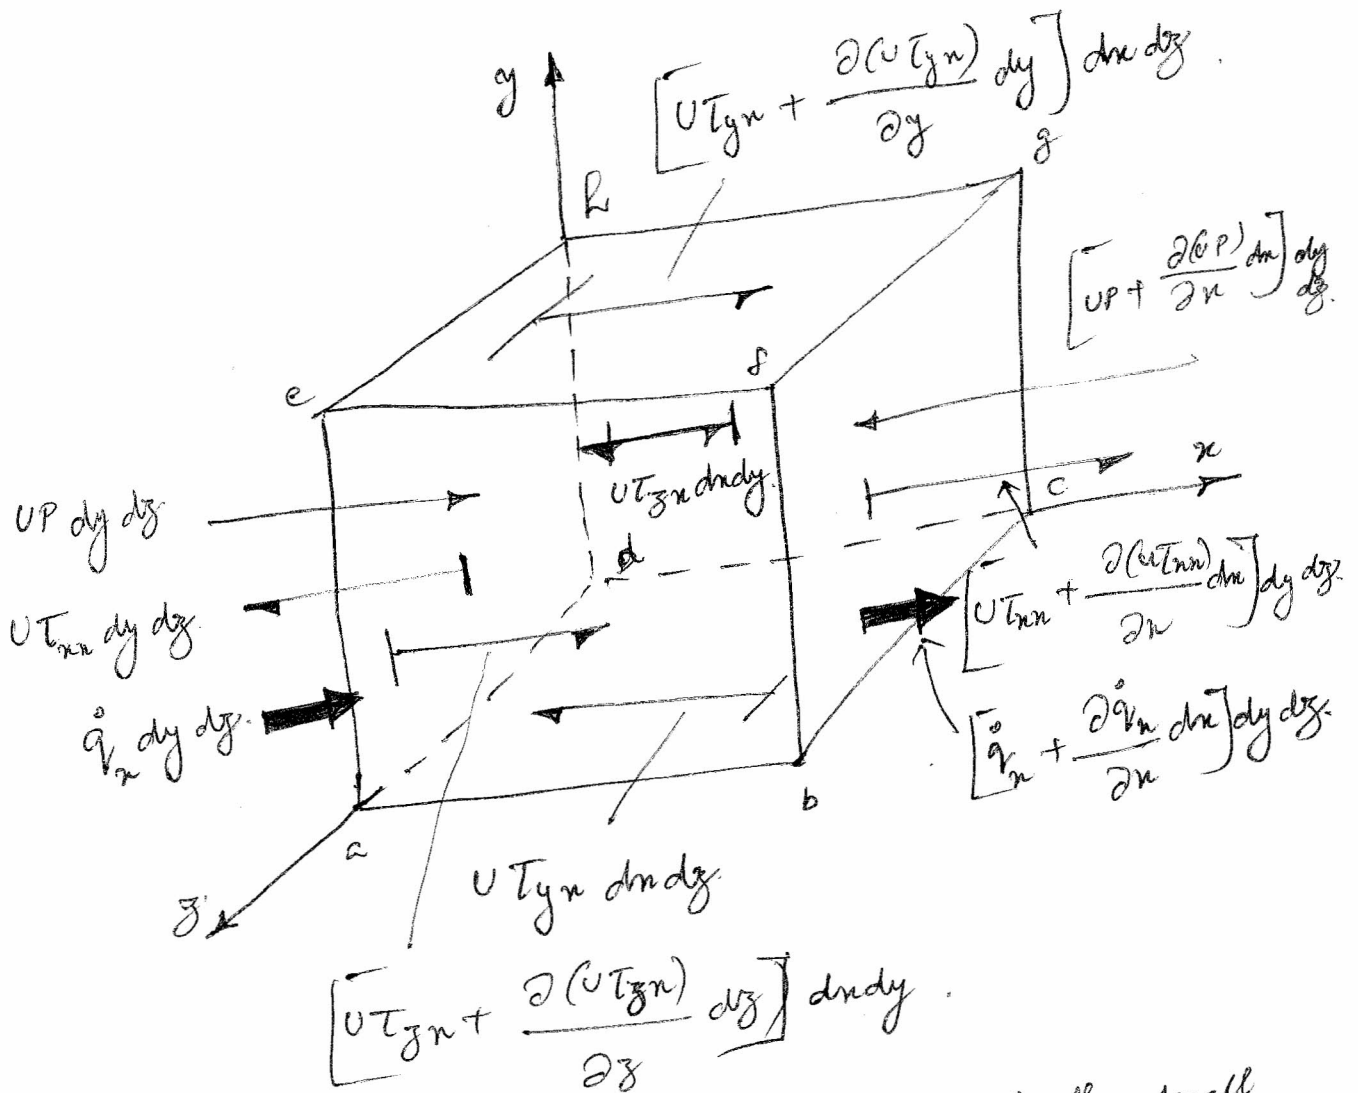 y
[Uτyx + ∂(Uτyx)/∂y dy] dx dz.
g
h
[UP + ∂(UP)/∂x dx] dy dz.
e
f
x
Uτzx dxdy.
c
UP dy dz.
d
[Uτxx + ∂(Uτxx)/∂x dx] dy dz.
Uτxx dy dz.
q̊x dy dz.
[q̊x + ∂q̊x/∂x dx] dy dz.
b
a
Uτyx dx dz.
z
[Uτzx + ∂(Uτzx)/∂z dz] dxdy.